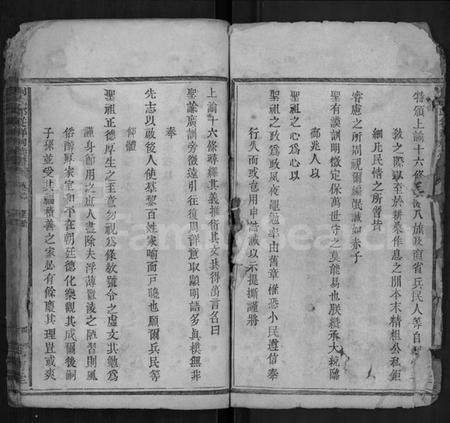 特頒上諭十六條曉諭八旗及直省兵民人等自
教之際以至於耕桑作息之間本末精粗公私鉅
細凡民情之所習皆
睿慮之所周視爾編氓誠如赤子
聖有謨訓明徵定保萬世守之莫能易也朕纘承大統臨
御兆人以
聖祖之心為心以
聖祖之政為政夙夜黽勉率由舊章惟恐小民遵信奉
行久而或怠用申誥誡以示提撕謹將
上諭十六條尋繹其義推衍其文共得萬言名曰
聖諭廣訓旁徵遠引往復周詳意取顯明語多直樸無非
奉
先志以啟後人使羣黎百姓家喻而戶曉也願爾兵民等
仰體
聖祖正德厚生之至意勿視為條教號令之虛文共勉為
謹身節用之庶人盡除夫浮薄囂凌之陋習則風
俗醇厚家室和平在朝廷德化樂觀其成爾後嗣
子孫並受其福積善之家必有餘慶其理豈或爽
FamilySearch